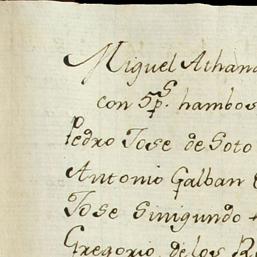 Miguel Athana
con 5 p.s hambos
Pedro Jose de Soto
Antonio Galban
Jose Sinigundo
Gregorio de los R